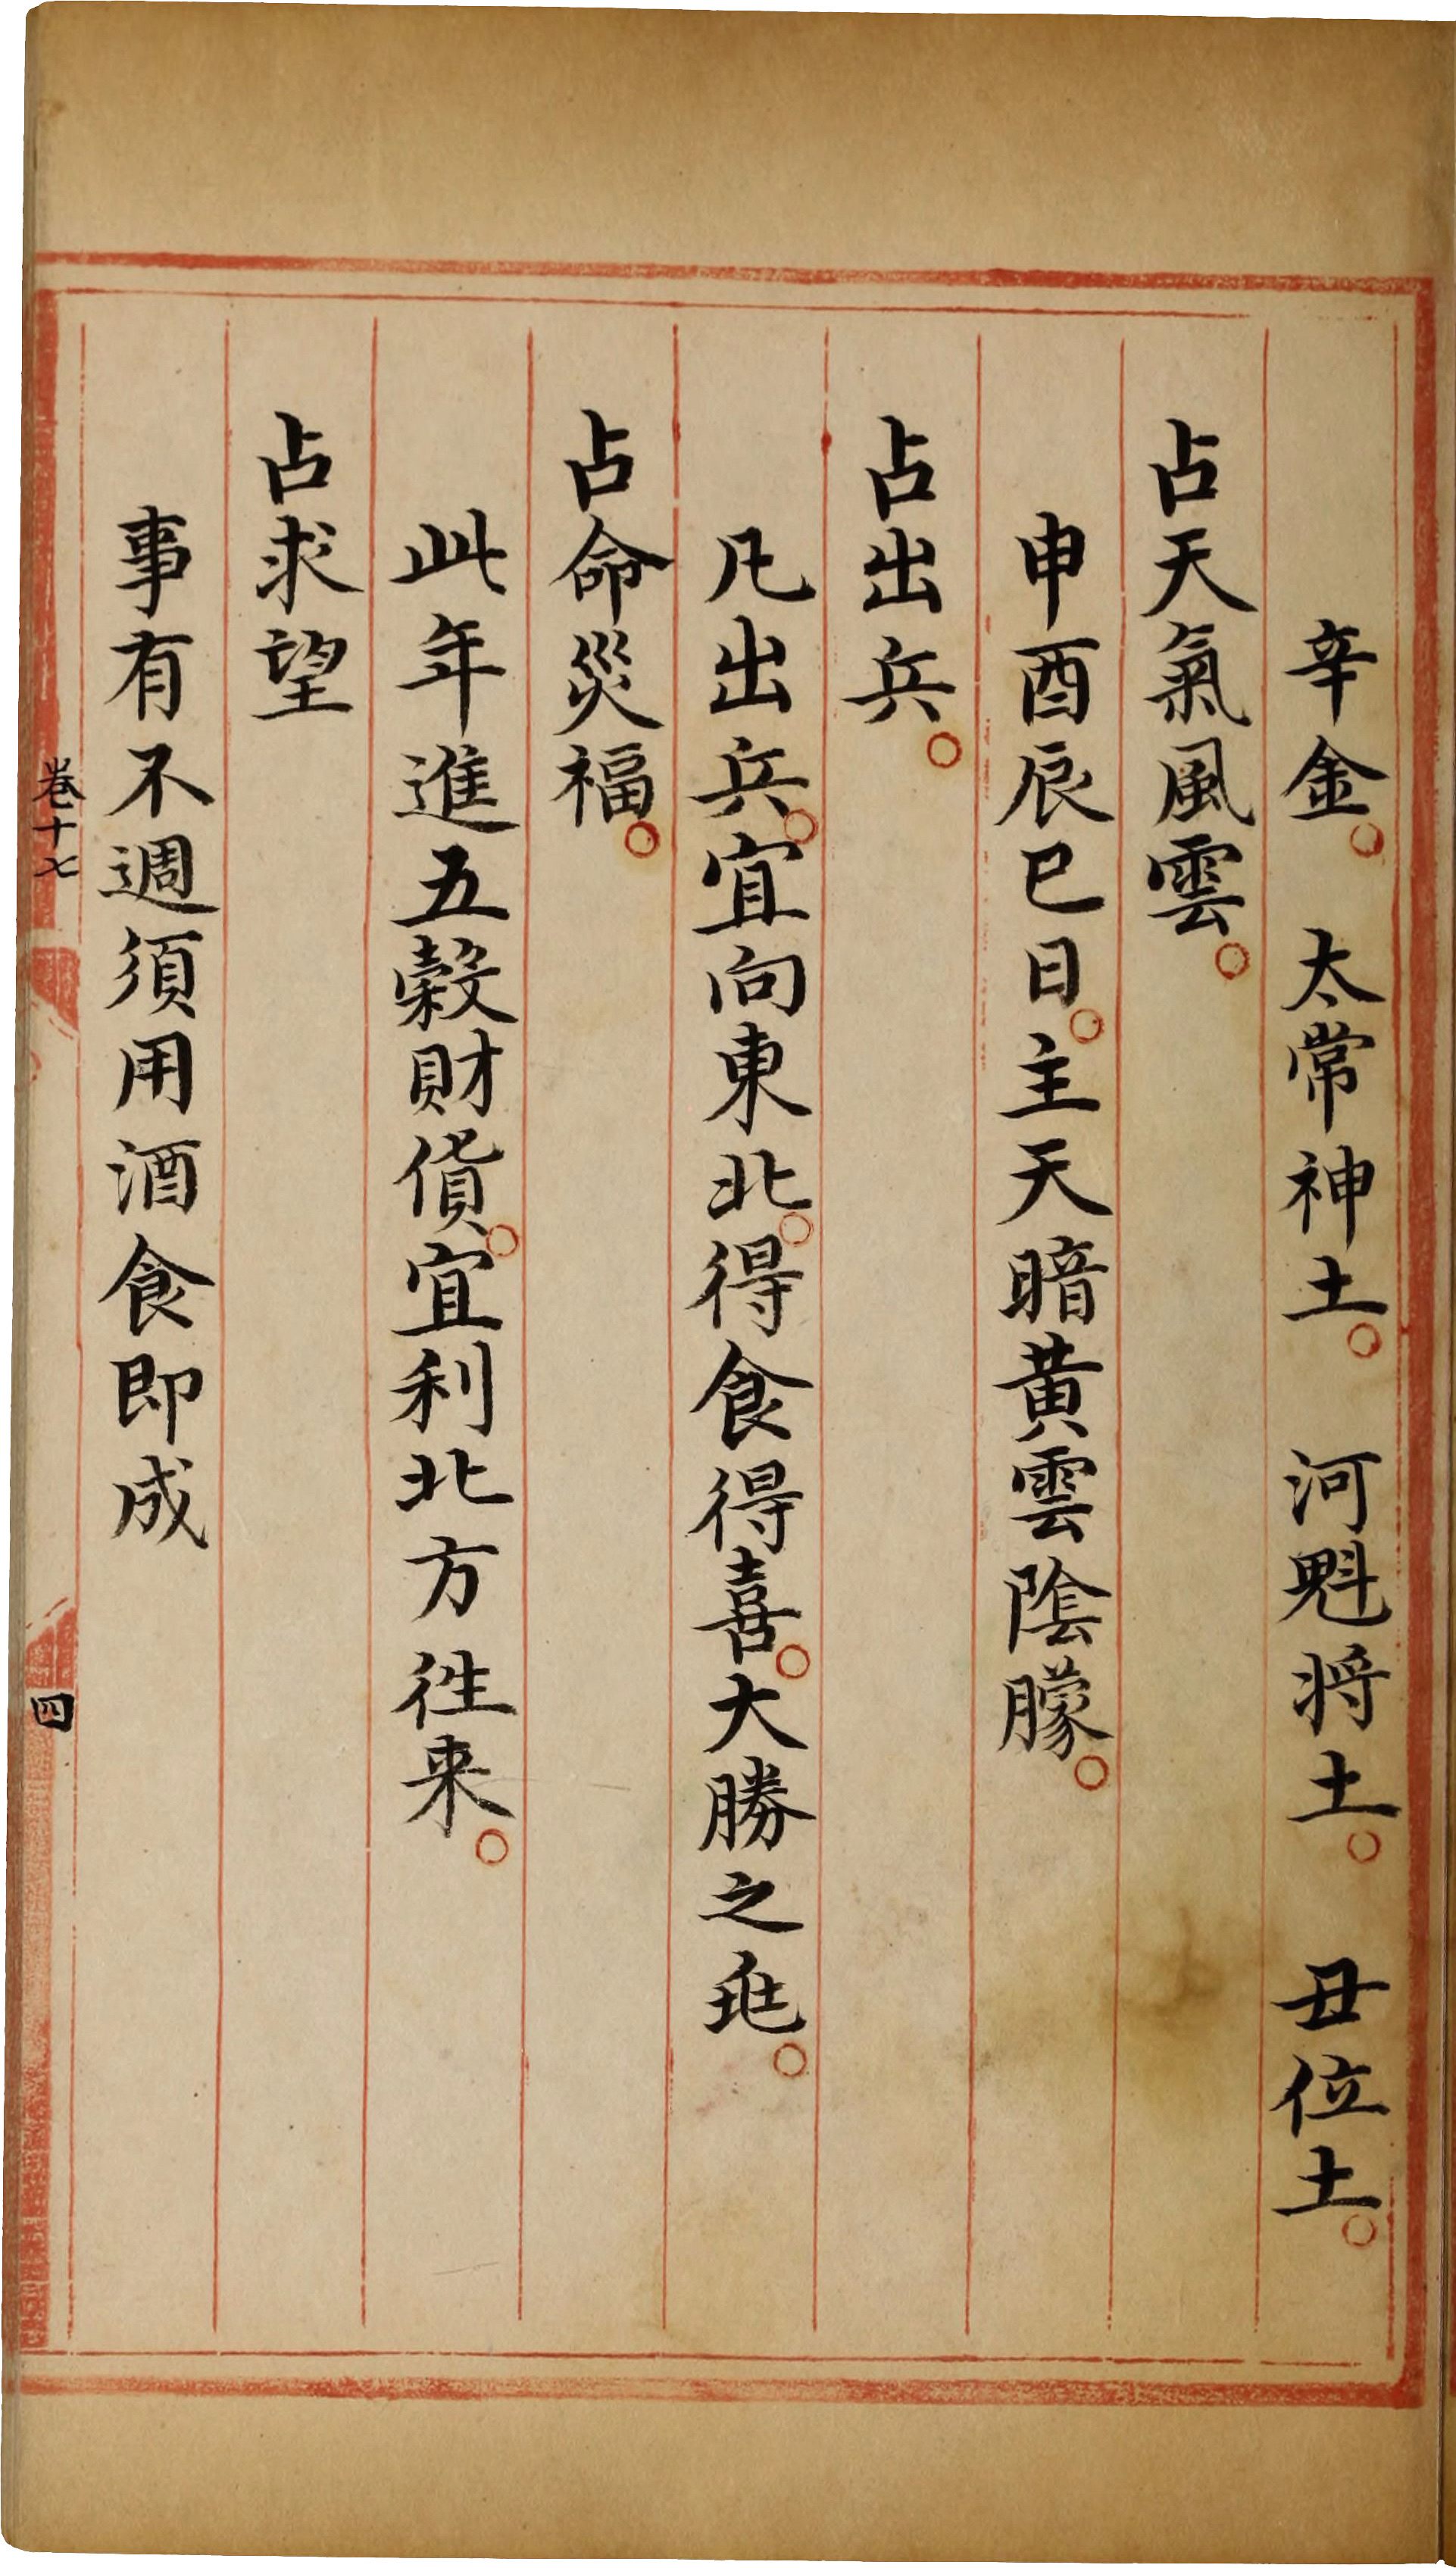 辛金。　太常神土。　河魁将土。　丑位土。
占天氣風雲。
申酉辰巳日。主天暗黄雲陰朦。
占出兵。
凡出兵。宜向東北。得食得喜。大勝之兆。
占命災福。
此年進五穀財貨。宜利北方徃来。
占求望
事有不週須用酒食即成
卷十七
四